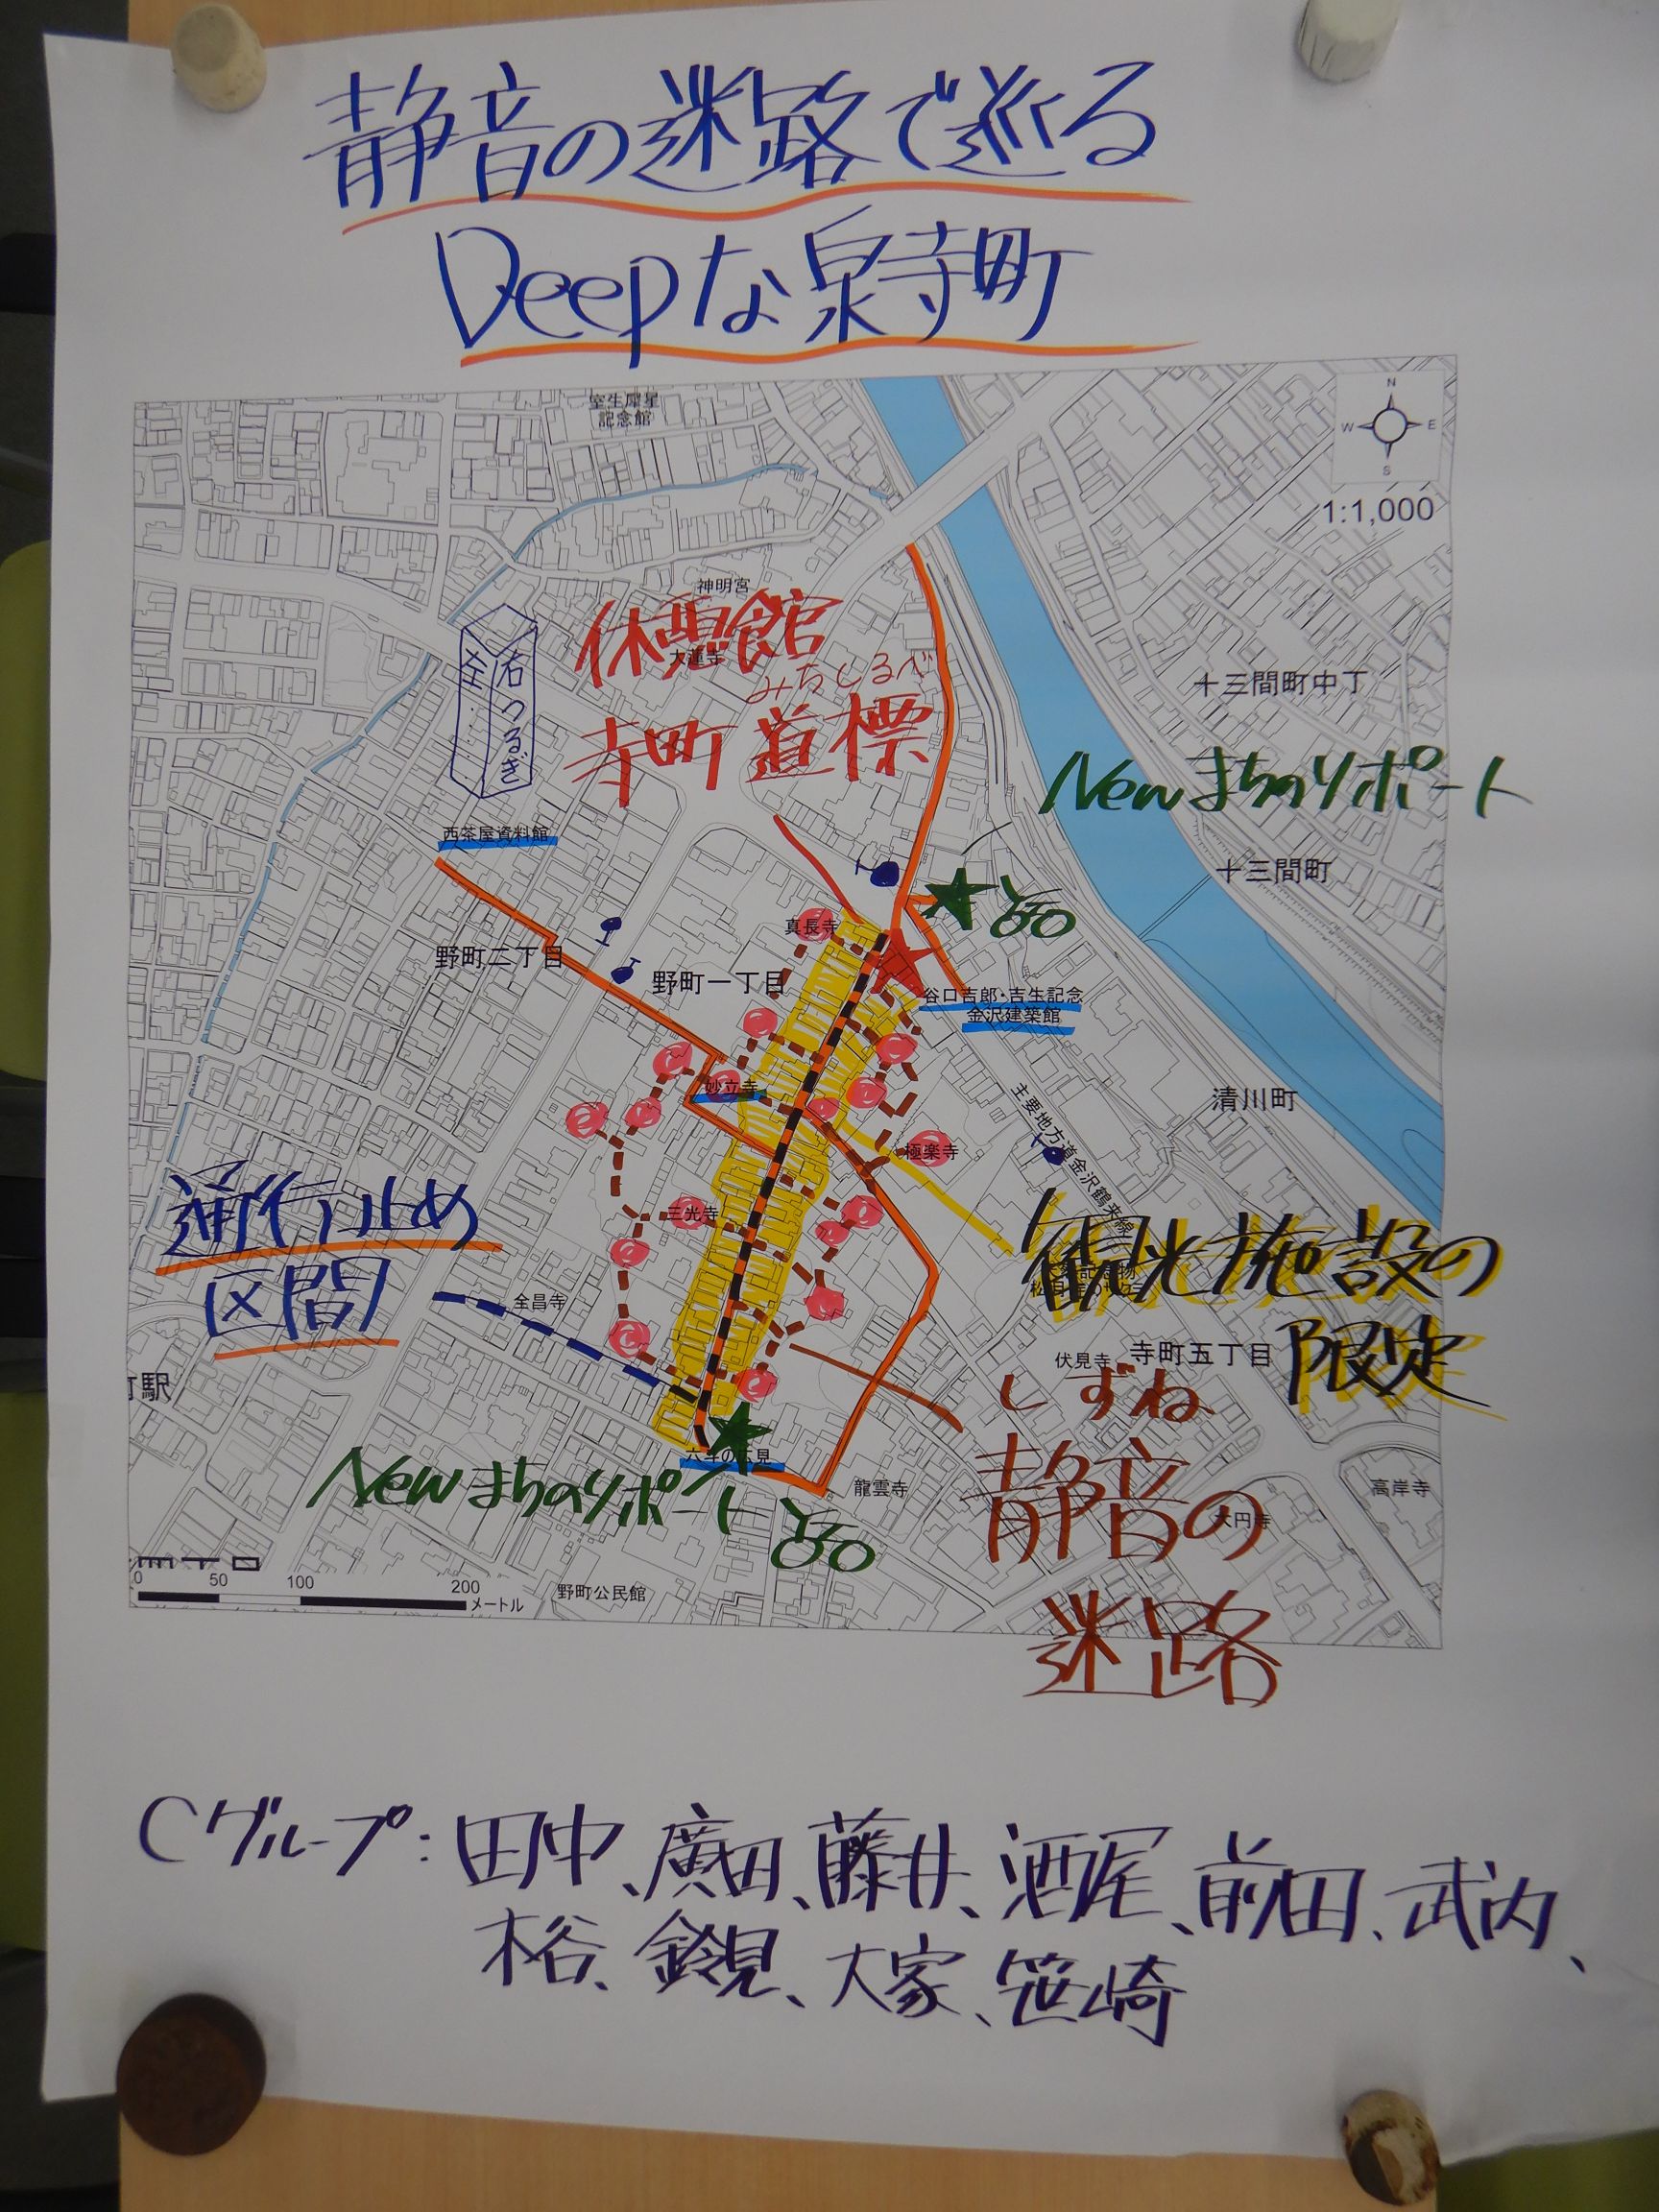 静音の迷路で巡る
Deepな泉寺町
室生犀星
記念館
N
W E
S
1:1,000
神明宮
休憩館
大蓮寺
みちしるべ
寺町道標
左
右つるぎ
十三間町中丁
Newまちのりポート
十三間町
西茶屋資料館
真長寺
野町二丁目
野町一丁目
谷口吉郎・吉生記念
金沢建築館
妙立寺
清川町
主要地方道金沢鶴来線
極楽寺
三光寺
通行止め
区間
観光施設の
限定
全昌寺
伏見寺
寺町五丁目
町駅
しずね
静音の
迷路
六斗の広見
Newまちのりポート
龍雲寺
高岸寺
大円寺
0 50 100 200
メートル
野町公民館
Cグループ:田中、廣田、藤井、酒尾、前田、武内、
木谷、鈴見、大家、笹崎